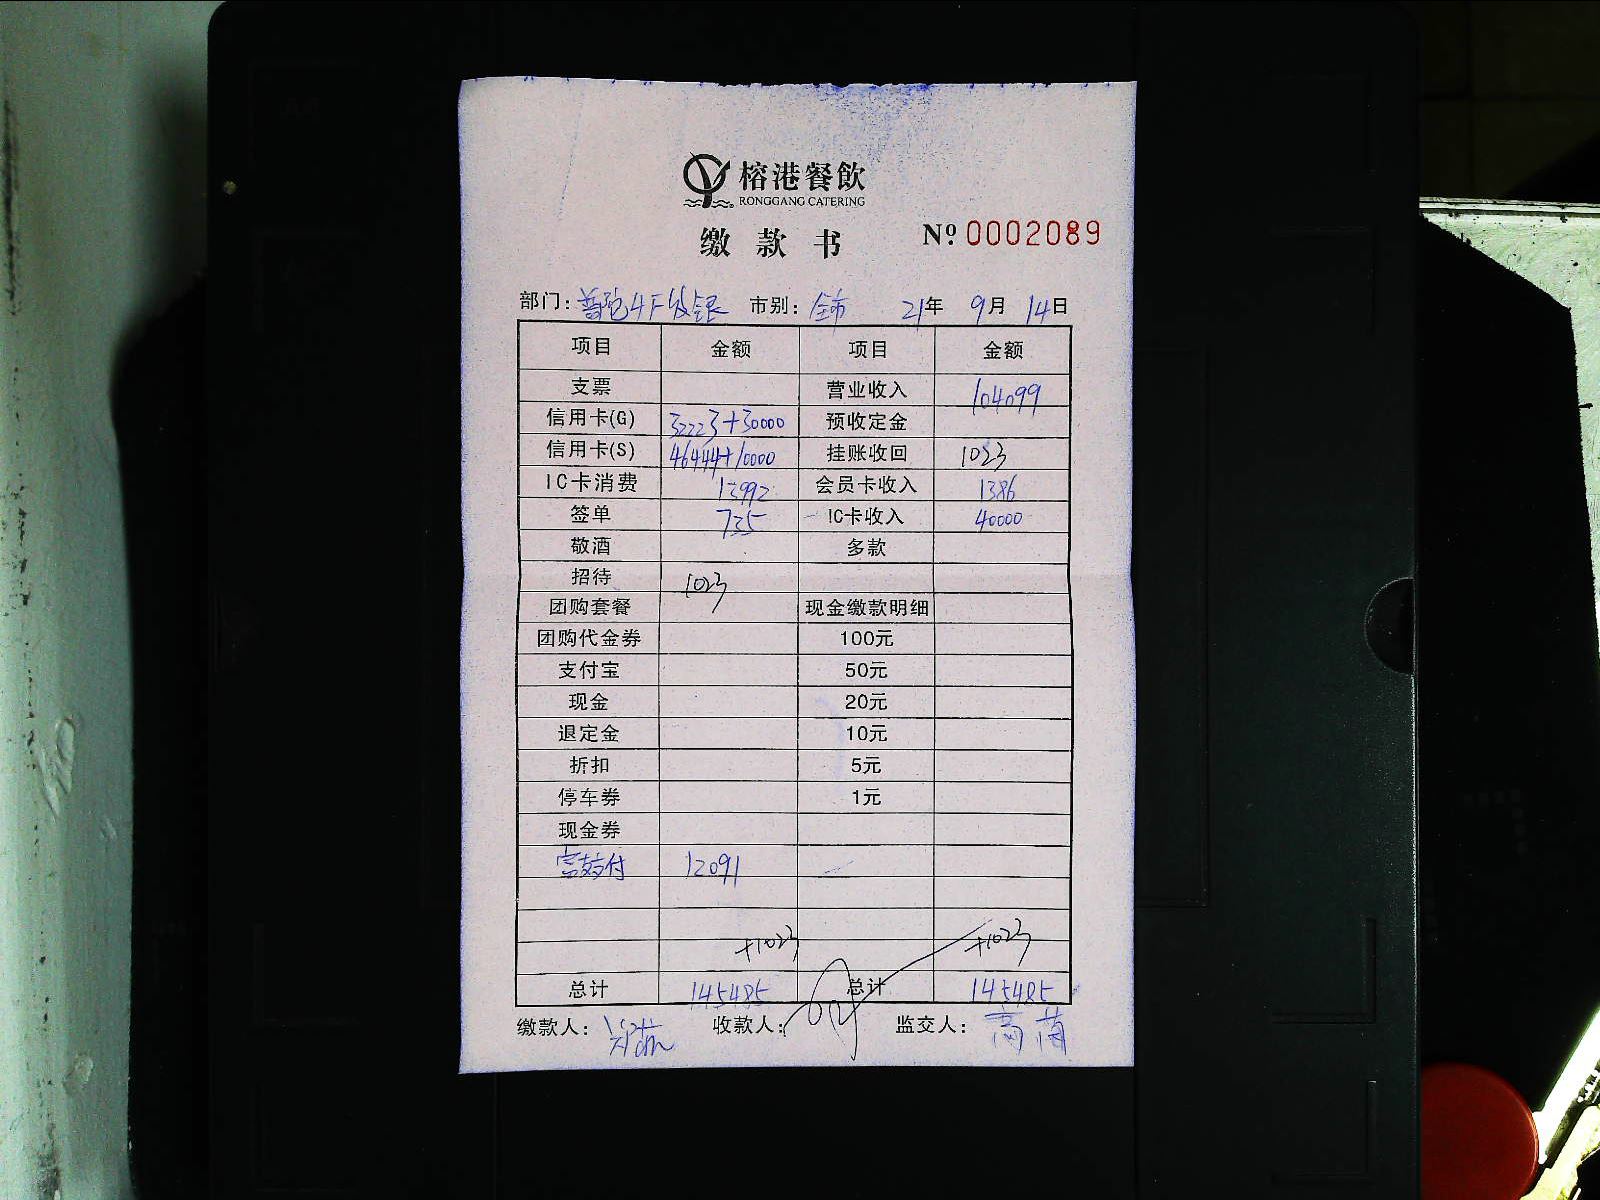 榕港餐飲
RONGGANG CATERING
缴款书 Nº 0002089
部门: 普陀4F收银 市别: 全市 21年 9月 14日
项目 金额 项目 金额
支票 营业收入 104099
信用卡(G) 32223+30000 预收定金
信用卡(S) 46444+10000 挂账收回 1023
IC卡消费 13992 会员卡收入 1386
签单 735 IC卡收入 40000
敬酒 多款
招待 1023
团购套餐 现金缴款明细
团购代金券 100元
支付宝 50元
现金 20元
退定金 10元
折扣 5元
停车券 1元
现金券
付 12091
+1023 +1023
总计 145485 总计 145485
缴款人: 收款人: 监交人: 高